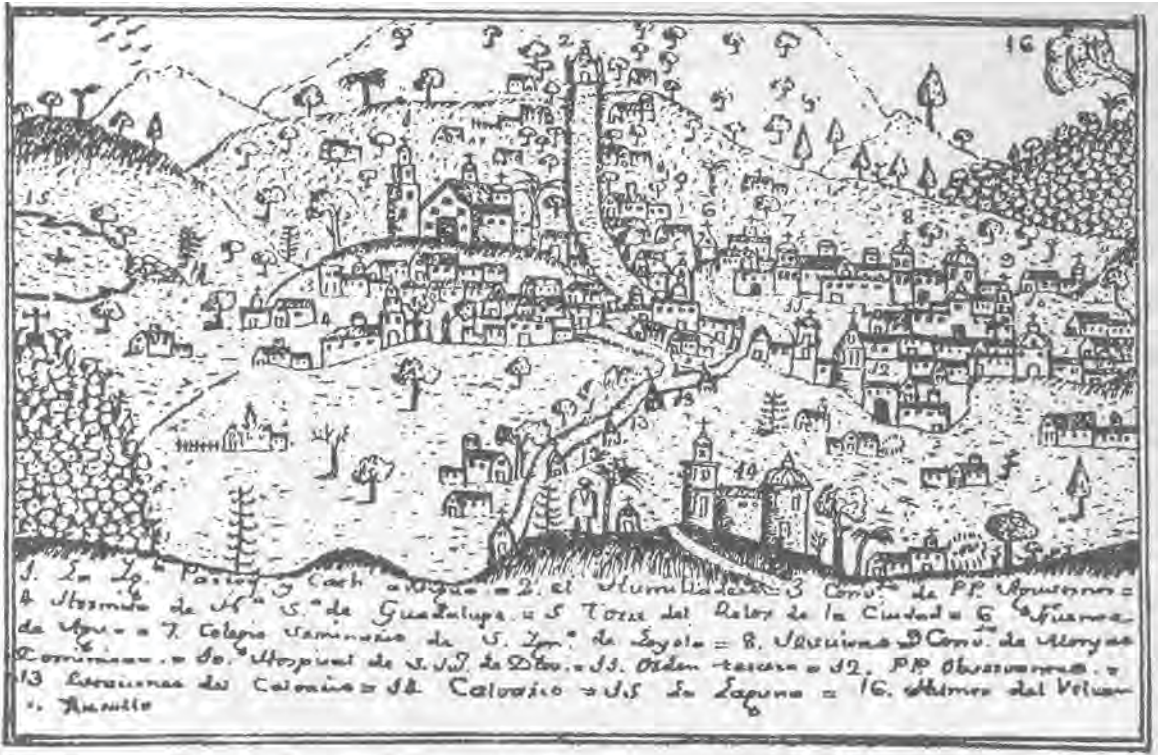 16
2
15
6
7
8
9
3
11
12
13
13
14
1. La Ig.ª Parroq.l y = 2. el Humilladero = 3 Conv.to de PP. Agustinos =
4 Hermita de N.ª S.ª de Guadalupe. = 5 Torre del Relox de la Ciudad = 6
de Agua = 7. Colegio Seminario de S. Ign.o de Loyola = 8. 9 Conv.to de Monjas
Dominicas. = 10. Hospital de S. J. de Dios. = 11. Orden tercera = 12. PP Observantes. =
13 Estaciones del Calvario = 14 Calvario = 15 La Laguna = 16. Humos del Volcan